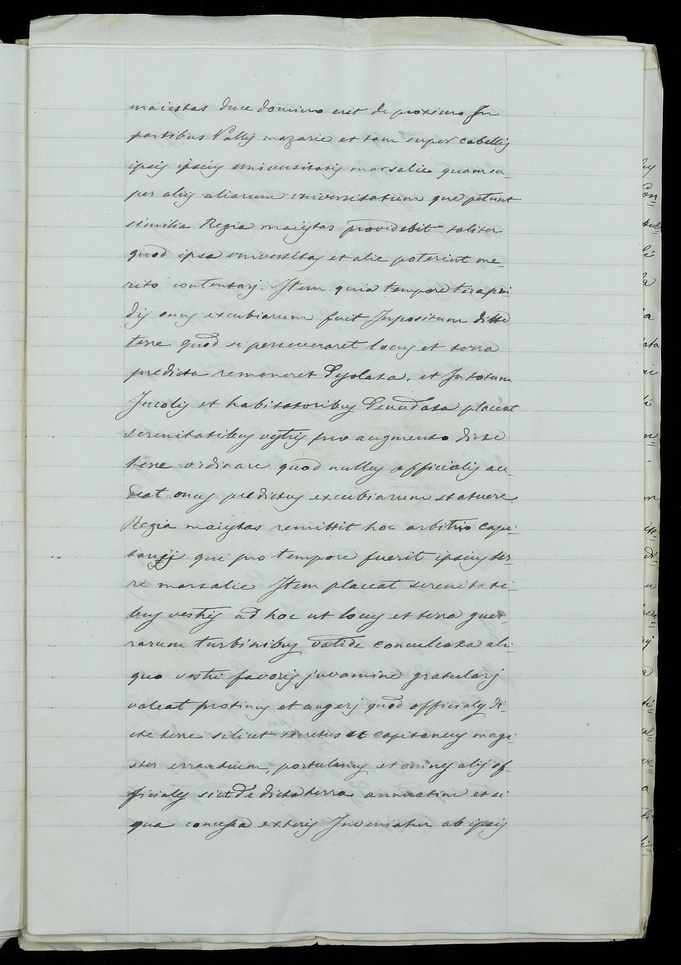 maiestas duce domino erit de proximo In
partibus Vallis mazarie et tam super cabellis
ipsis ipsius universitatis marsalie quam su-
per alijs aliarum universitatum que petunt
similia Regia maiestas providebit taliter
quod ipsa universitas et alie poterint me-
rito contentarj. Item quia tempore
dis onus excubiarum fuit Impositum dicte
terre quod si perseveraret locus et terra
predicta remaneret Desolata, et In totum
Incolis et habitatoribus Denudata placeat
serenitatibus vestris pro augmento dicte
terre ordinare quod nullus officialis au-
deat onus predictus excubiarum statuere
Regia maiestas remittit hoc arbitrio capi-
que pro tempore fuerit ipsius ter-
re marsalie Item placeat serenitati-
bus vestris ad hoc ut locus et terra guer-
rarum turbinibus valide conculcata ali-
quo vestri favoris juvamine gratularj
valeat protinus et augerj quod officialis di-
cte terre silicet secretus et capitaneus magi-
ster errancium, portulanus et omnes alij of-
ficiales sint de dicta terra annuatim et si
qua concessa exteris Inveniatur ab ipsis